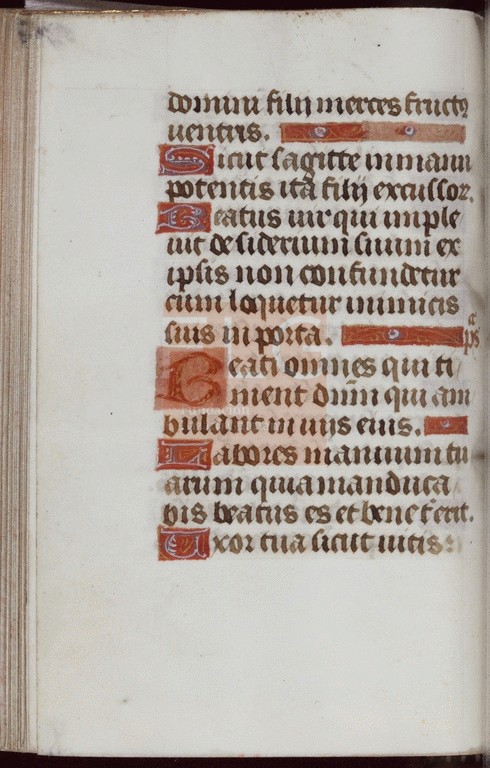 domini filij merces fructꝰ
uentris.
Sicut sagitte in manu
potentis ita filij excussoꝝ.
Beatus uir qui imple
uit desiderium suum ex
ipsis non confundetur
cum loquetur inimicis
suis in porta.
ps
Beati omnes qui ti
ment dn̄m qui am
bulant in uijs eius.
Labores manuum tu
arum quia manduca
bis beatus es et bene t erit.
Uxor tua sicut uitis: